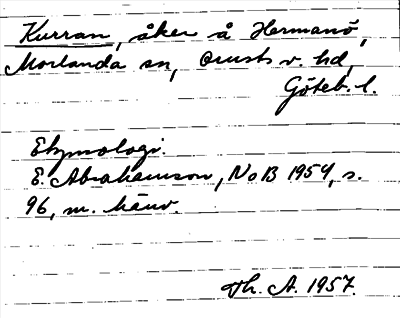 Kurran, åker å Hermanö,
Morlanda sn, Orusts v. hd,
Göteb. l.
Etymologi.
E. Abrahamson, NoB 1954, s.
96, m. hänv.
Th. A. 1957.